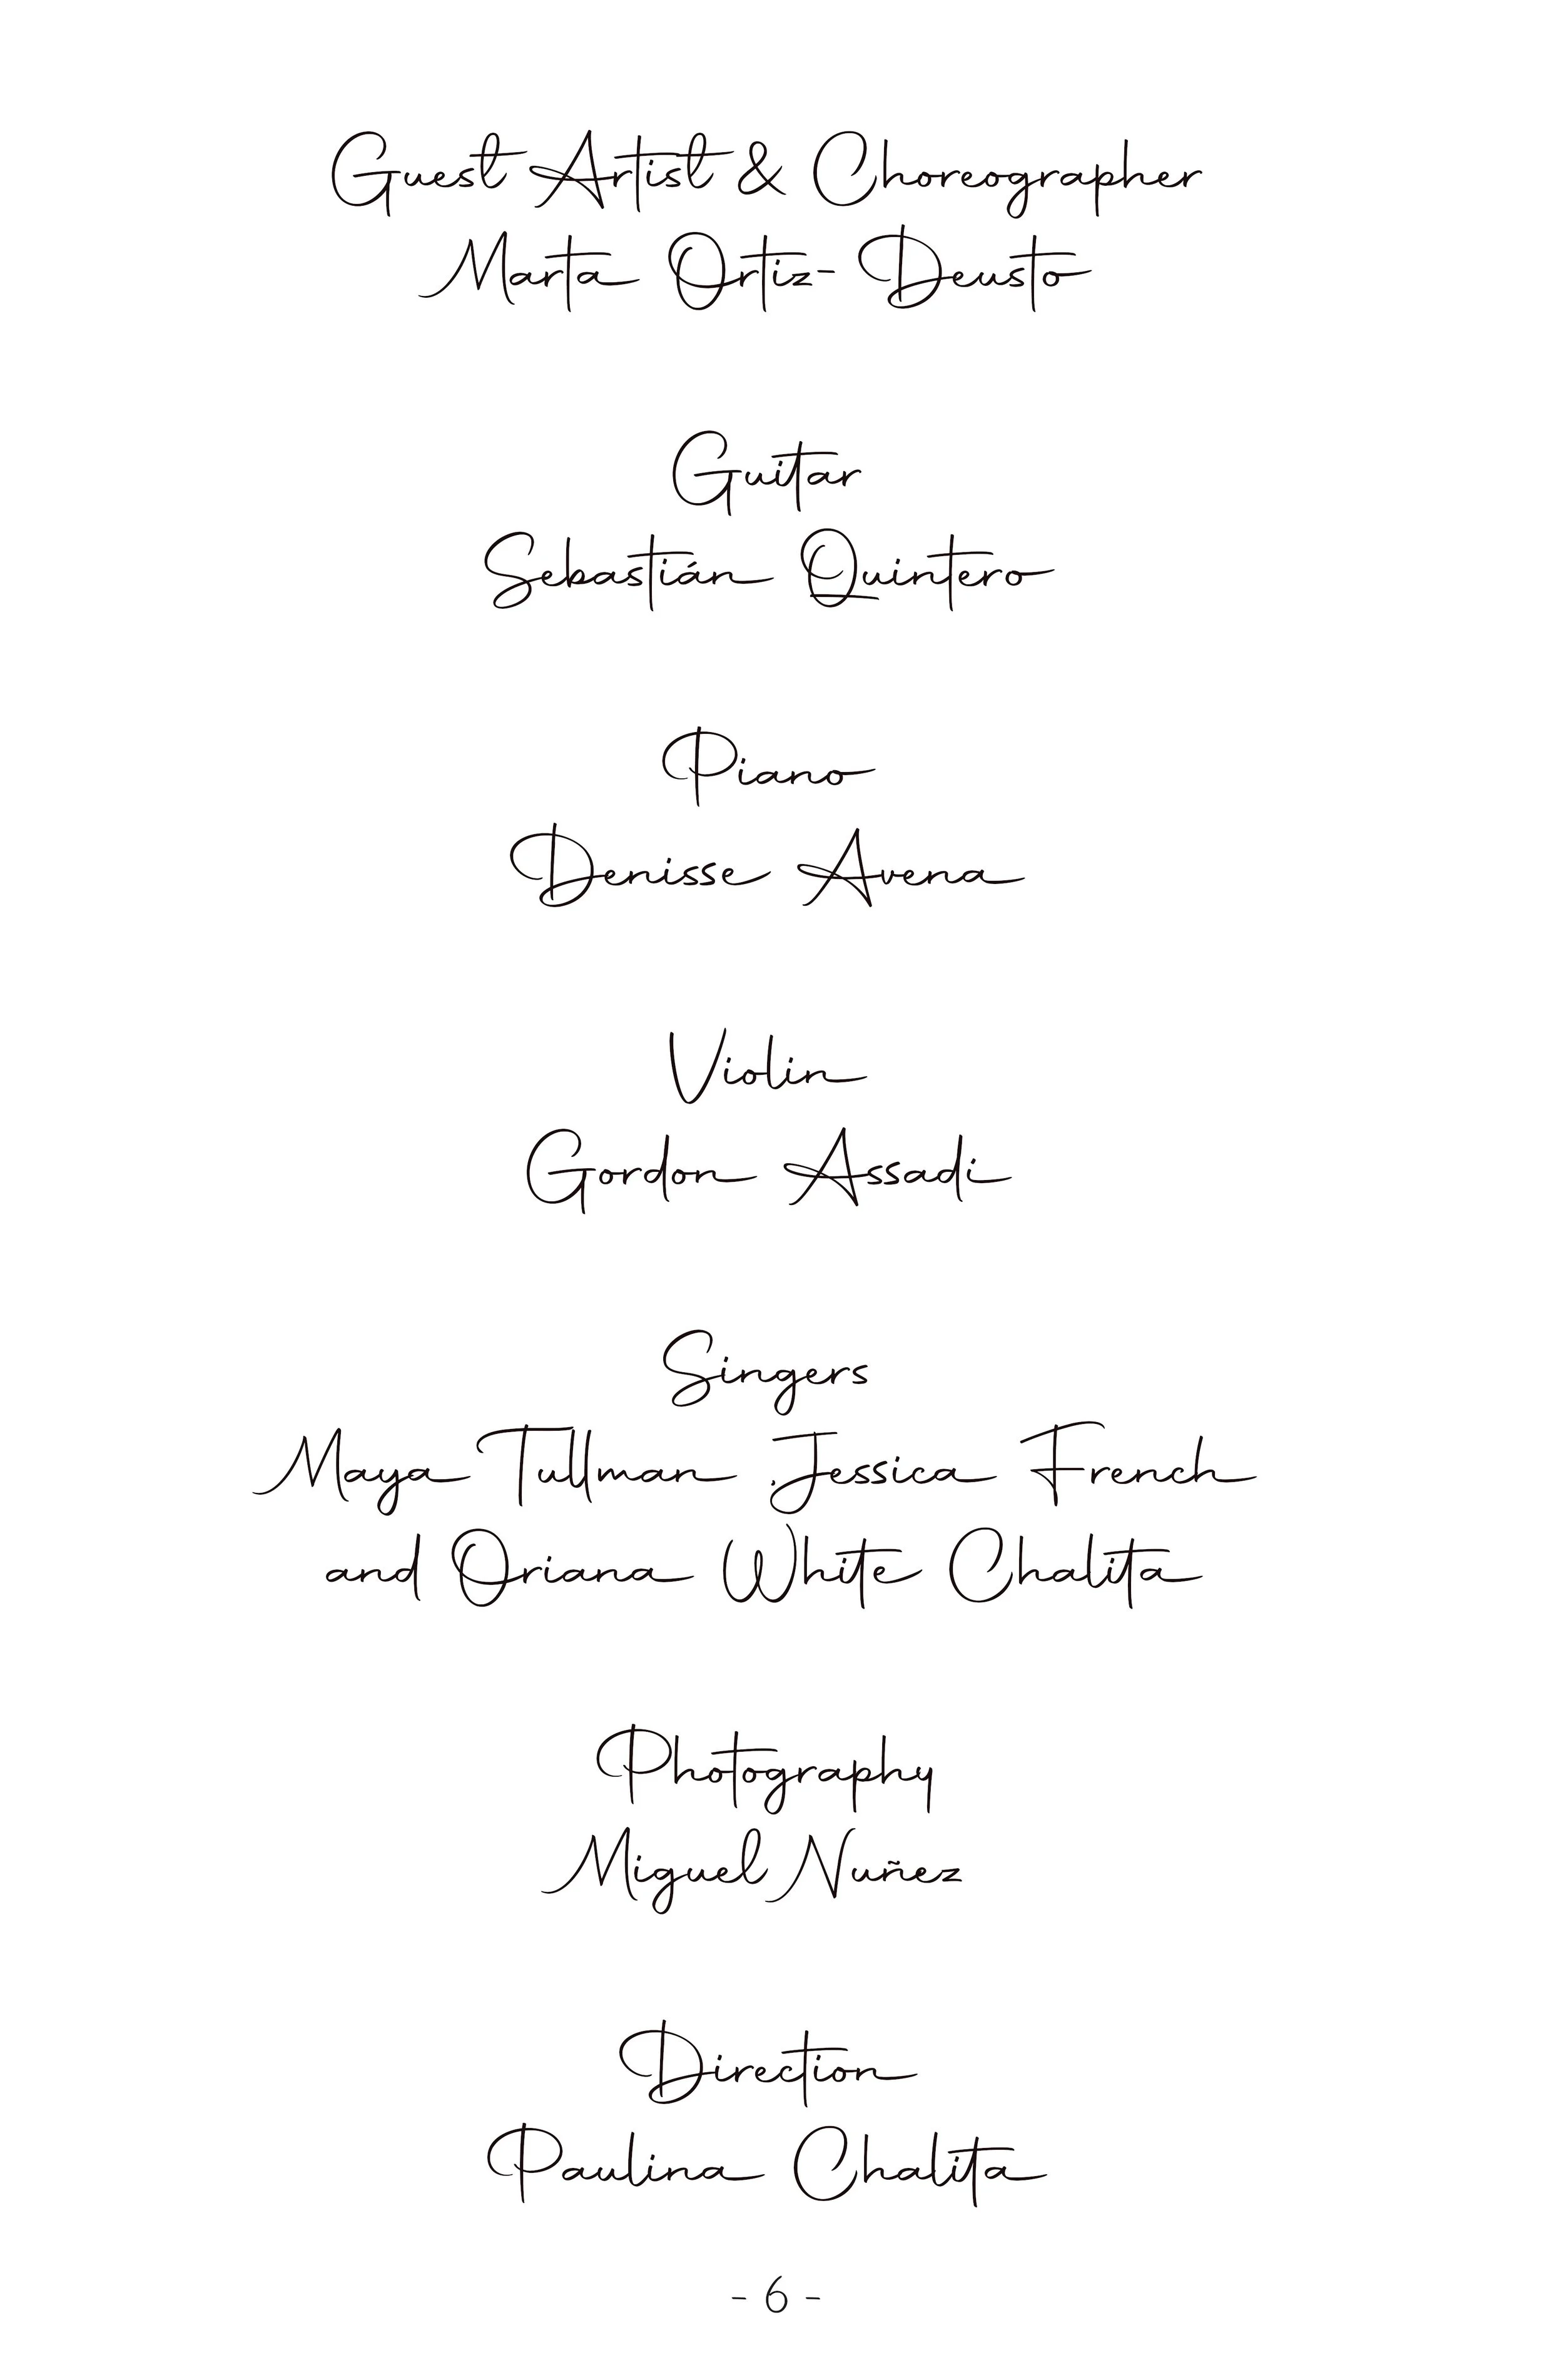 Guest Artist & Choreographer
Marta Ortiz- Deusto
Guitar
Sebastián Quintero
Piano
Denisse Avena
Violin
Gordon Assadi
Singers
Maya Tullman Jessica French
and Oriana White Chalita
Photography
Miguel Nuñez
Direction
Paulina Chalita
- 6 -